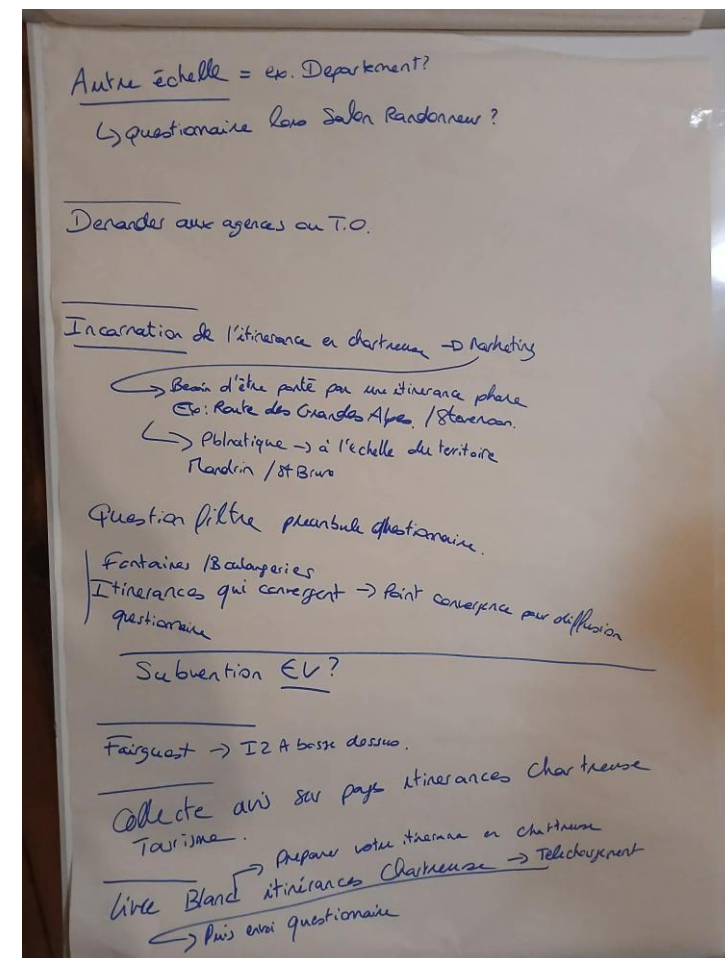 Autre échelle = ex. Departement?
↳ questionnaire lors Salon Randonneur ?
Demandes aux agences ou T.O.
Incarnation de l'itinerance en chartreuse → Marketing
↳ Besoin d'être porté par une itinerance phare
Ex: Route des Grandes Alpes / Stevenson.
↳ Pblmatique → à l'echelle du territoire
Mandrin / St Bruno
Question filtre preambule questionnaire.
Fontaines / Boulangeries
Itinerances qui convergent → Point convergence pour diffusion
questionnaire
Subvention EV?
Fairguest → I2A bosse dessus.
Collecte avis sur pages itinerances Chartreuse
Tourisme.
→ Preparer votre itinerance en chartreuse
Livre Bland itinérances Chartreuse → Telechargement
↳ Puis envoi questionaire